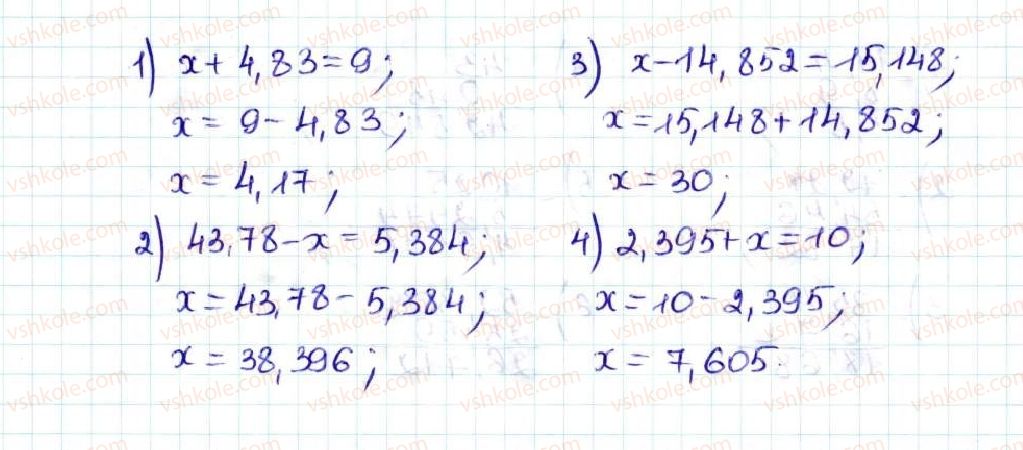 1) x + 4,83 = 9;
x = 9 - 4,83;
x = 4,17;
2) 43,78 - x = 5,384;
x = 43,78 - 5,384;
x = 38,396;
3) x - 14,852 = 15,148;
x = 15,148 + 14,852;
x = 30;
4) 2,395 + x = 10;
x = 10 - 2,395;
x = 7,605.
vshkole.com